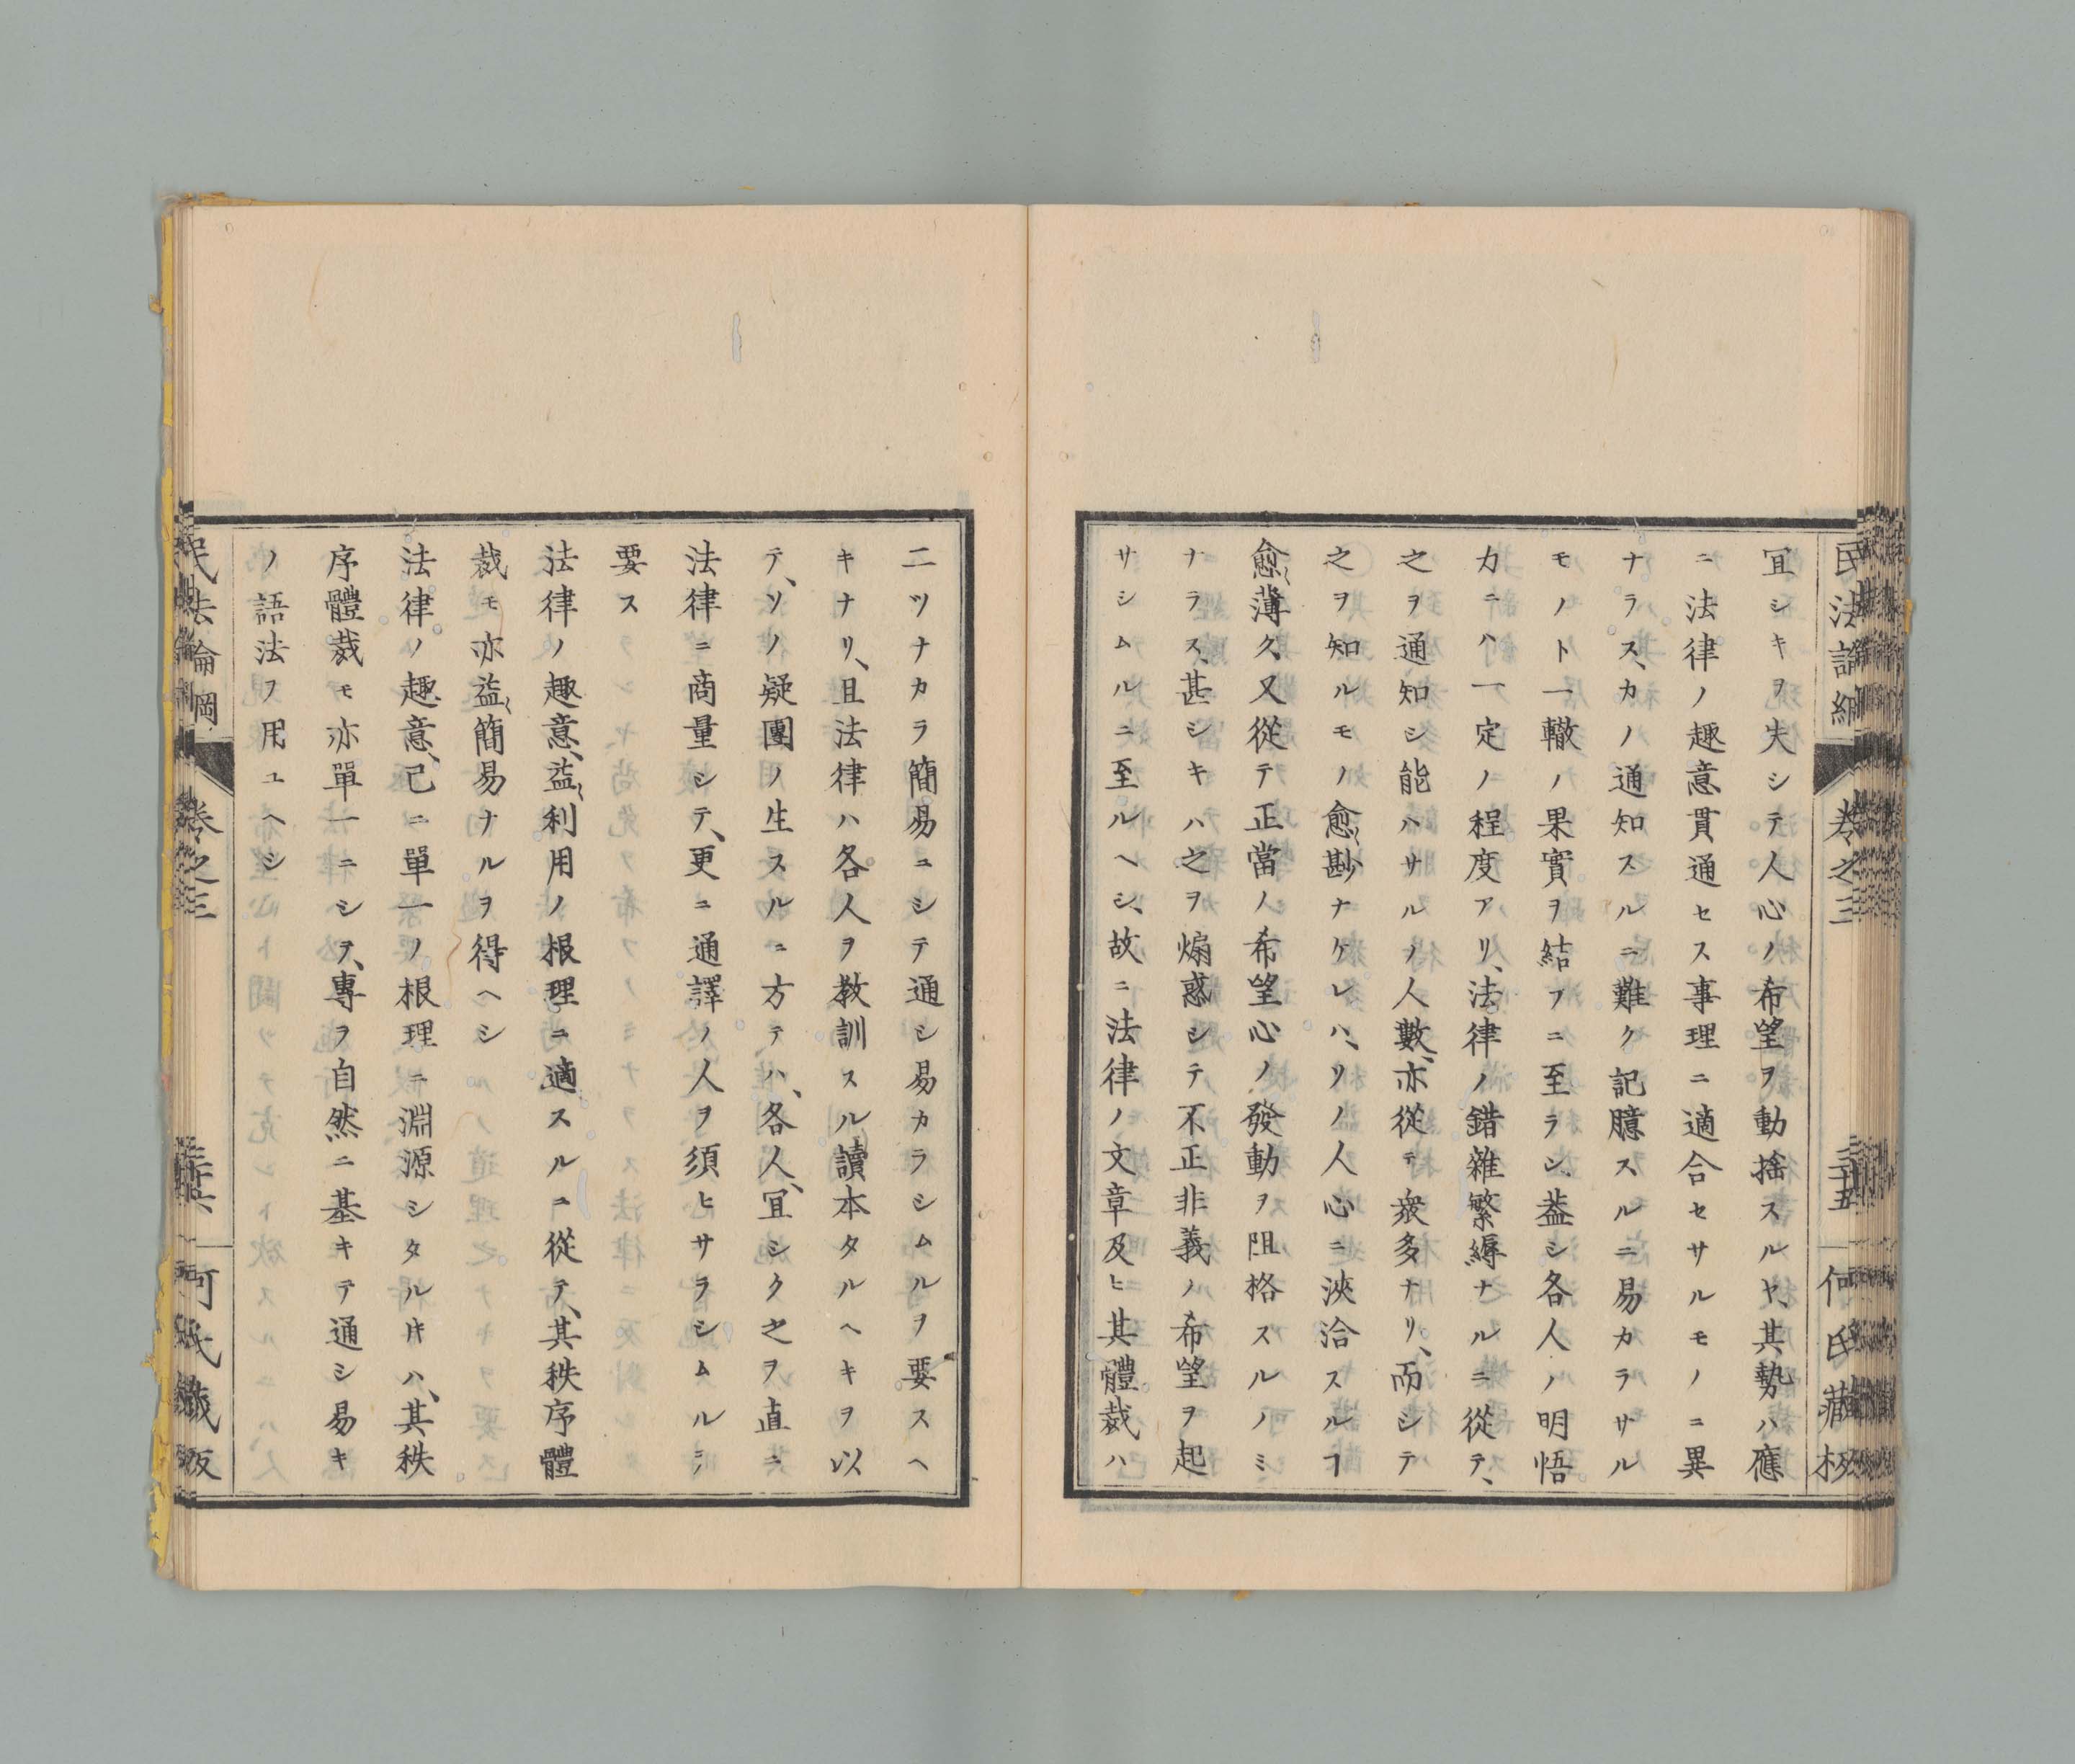 民法論綱 卷之三 三十五 何氏藏板
冝シキヲ失シテ人心ノ希望ヲ動揺スルヤ、其勢ハ應
ニ法律ノ趣意貫通セス事理ニ適合セサルモノニ異
ナラス、カノ通知スルニ難ク記臆スルニ易カラサル
モノト一轍ノ果實ヲ結フニ至ラン、葢シ各人ノ明悟
力ニハ一定ノ程度アリ、法律ノ錯雜繁縟ナルニ從テ、
之ヲ通知シ能ハサルノ人數、亦從テ衆多ナリ、而シテ
之ヲ知ルモノ愈〻尠ナケレハ、ソノ人心ニ浹洽スルヿ
愈〻薄ク、又從テ正當ノ希望心ノ發動ヲ阻格スルノミ
ナラス、甚シキハ之ヲ煽惑シテ不正非義ノ希望ヲ起
サシムルニ至ルヘシ、故ニ法律ノ文章及ヒ其體裁ハ
二ツナカラ簡易ニシテ通シ易カラシムルヲ要スヘ
キナリ、且法律ハ各人ヲ教訓スル讀本タルヘキヲ以
テ、ソノ疑團ノ生スルニ方テハ、各人、冝シク之ヲ直ニ
法律ニ商量シテ、更ニ通譯ノ人ヲ須ヒサラシムルヲ
要ス
法律ノ趣意、益〻利用ノ根理ニ適スルニ從テ、其秩序體
裁モ亦益〻簡易ナルヲ得ヘシ
法律ノ趣意、已ニ單一ノ根理ニ淵源シタル片ハ、其秩
序體裁モ亦單一ニシヲ、專ヲ自然ニ基キテ通シ易キ
ノ語法ヲ用ユヘシ
民法論綱 卷之三 三十六 何氏藏板